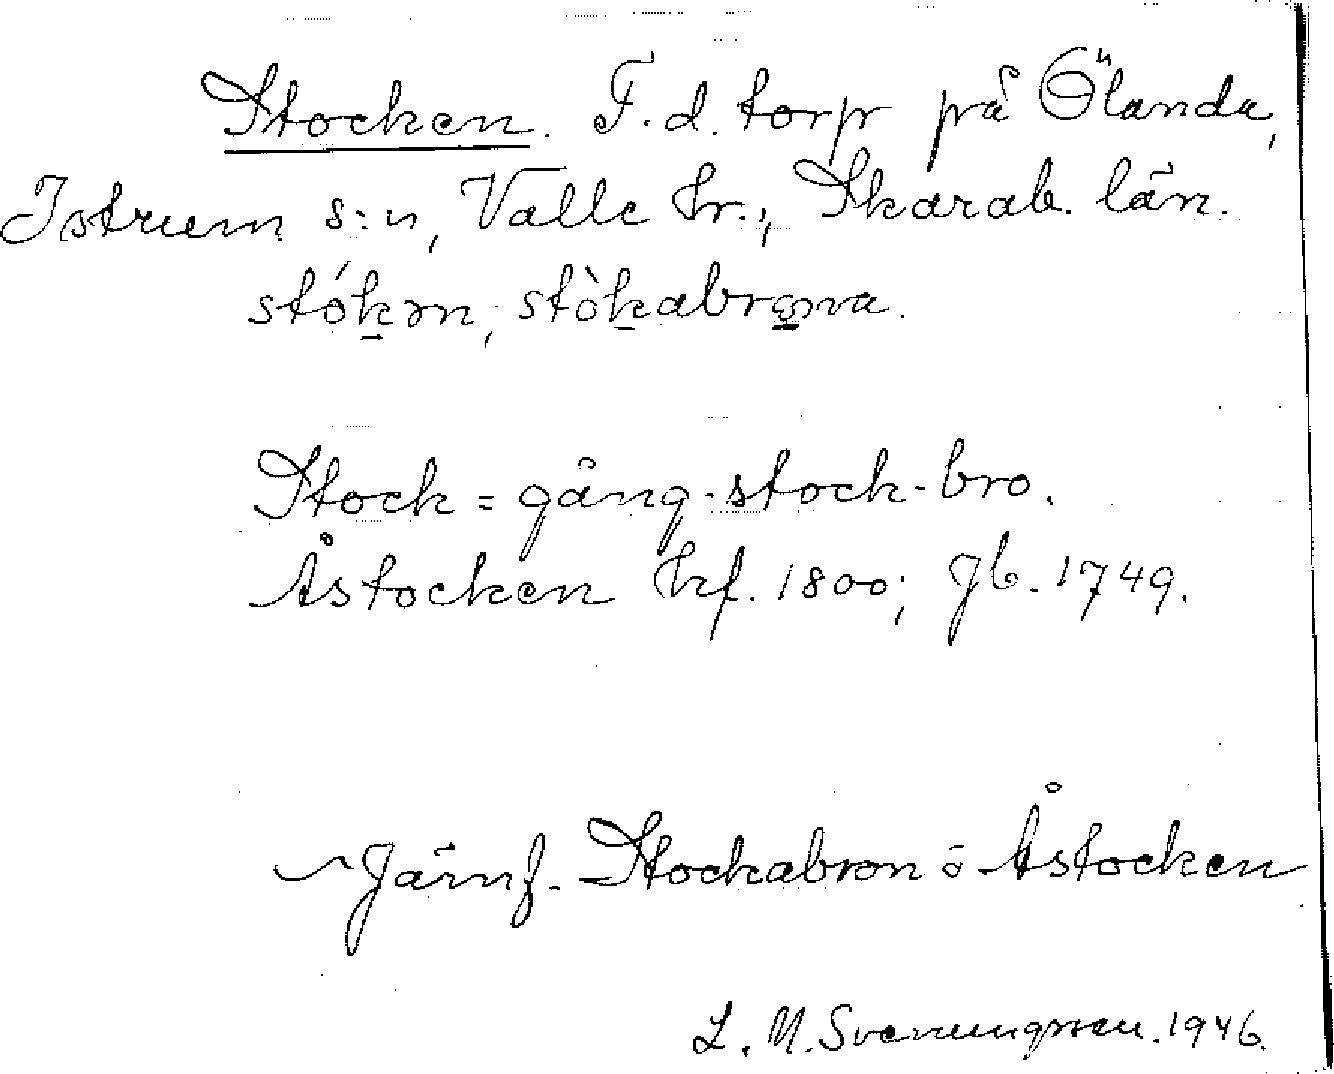 Stocken. F.d. torp på Ölanda,
Istrum s:n, Valle hr., Skarab. län.
stókən, stòkabrωna.
Stock = gång-stock-bro.
Åstocken hf. 1800; Jb. 1749.
Jämf. Stockabron o Åstocken
L. M. Svenungsson. 1946.